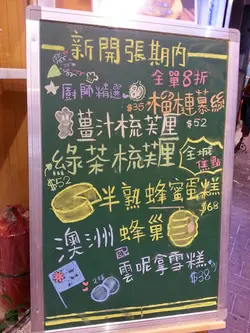 新開張期內
全單8折
廚師精選 榴槤慕絲
$35
薑汁梳芙厘 $52
綠茶梳芙厘 全城焦點
$52
半熟蜂蜜蛋糕
$68
澳洲蜂巢
配雲呢拿雪糕
$38